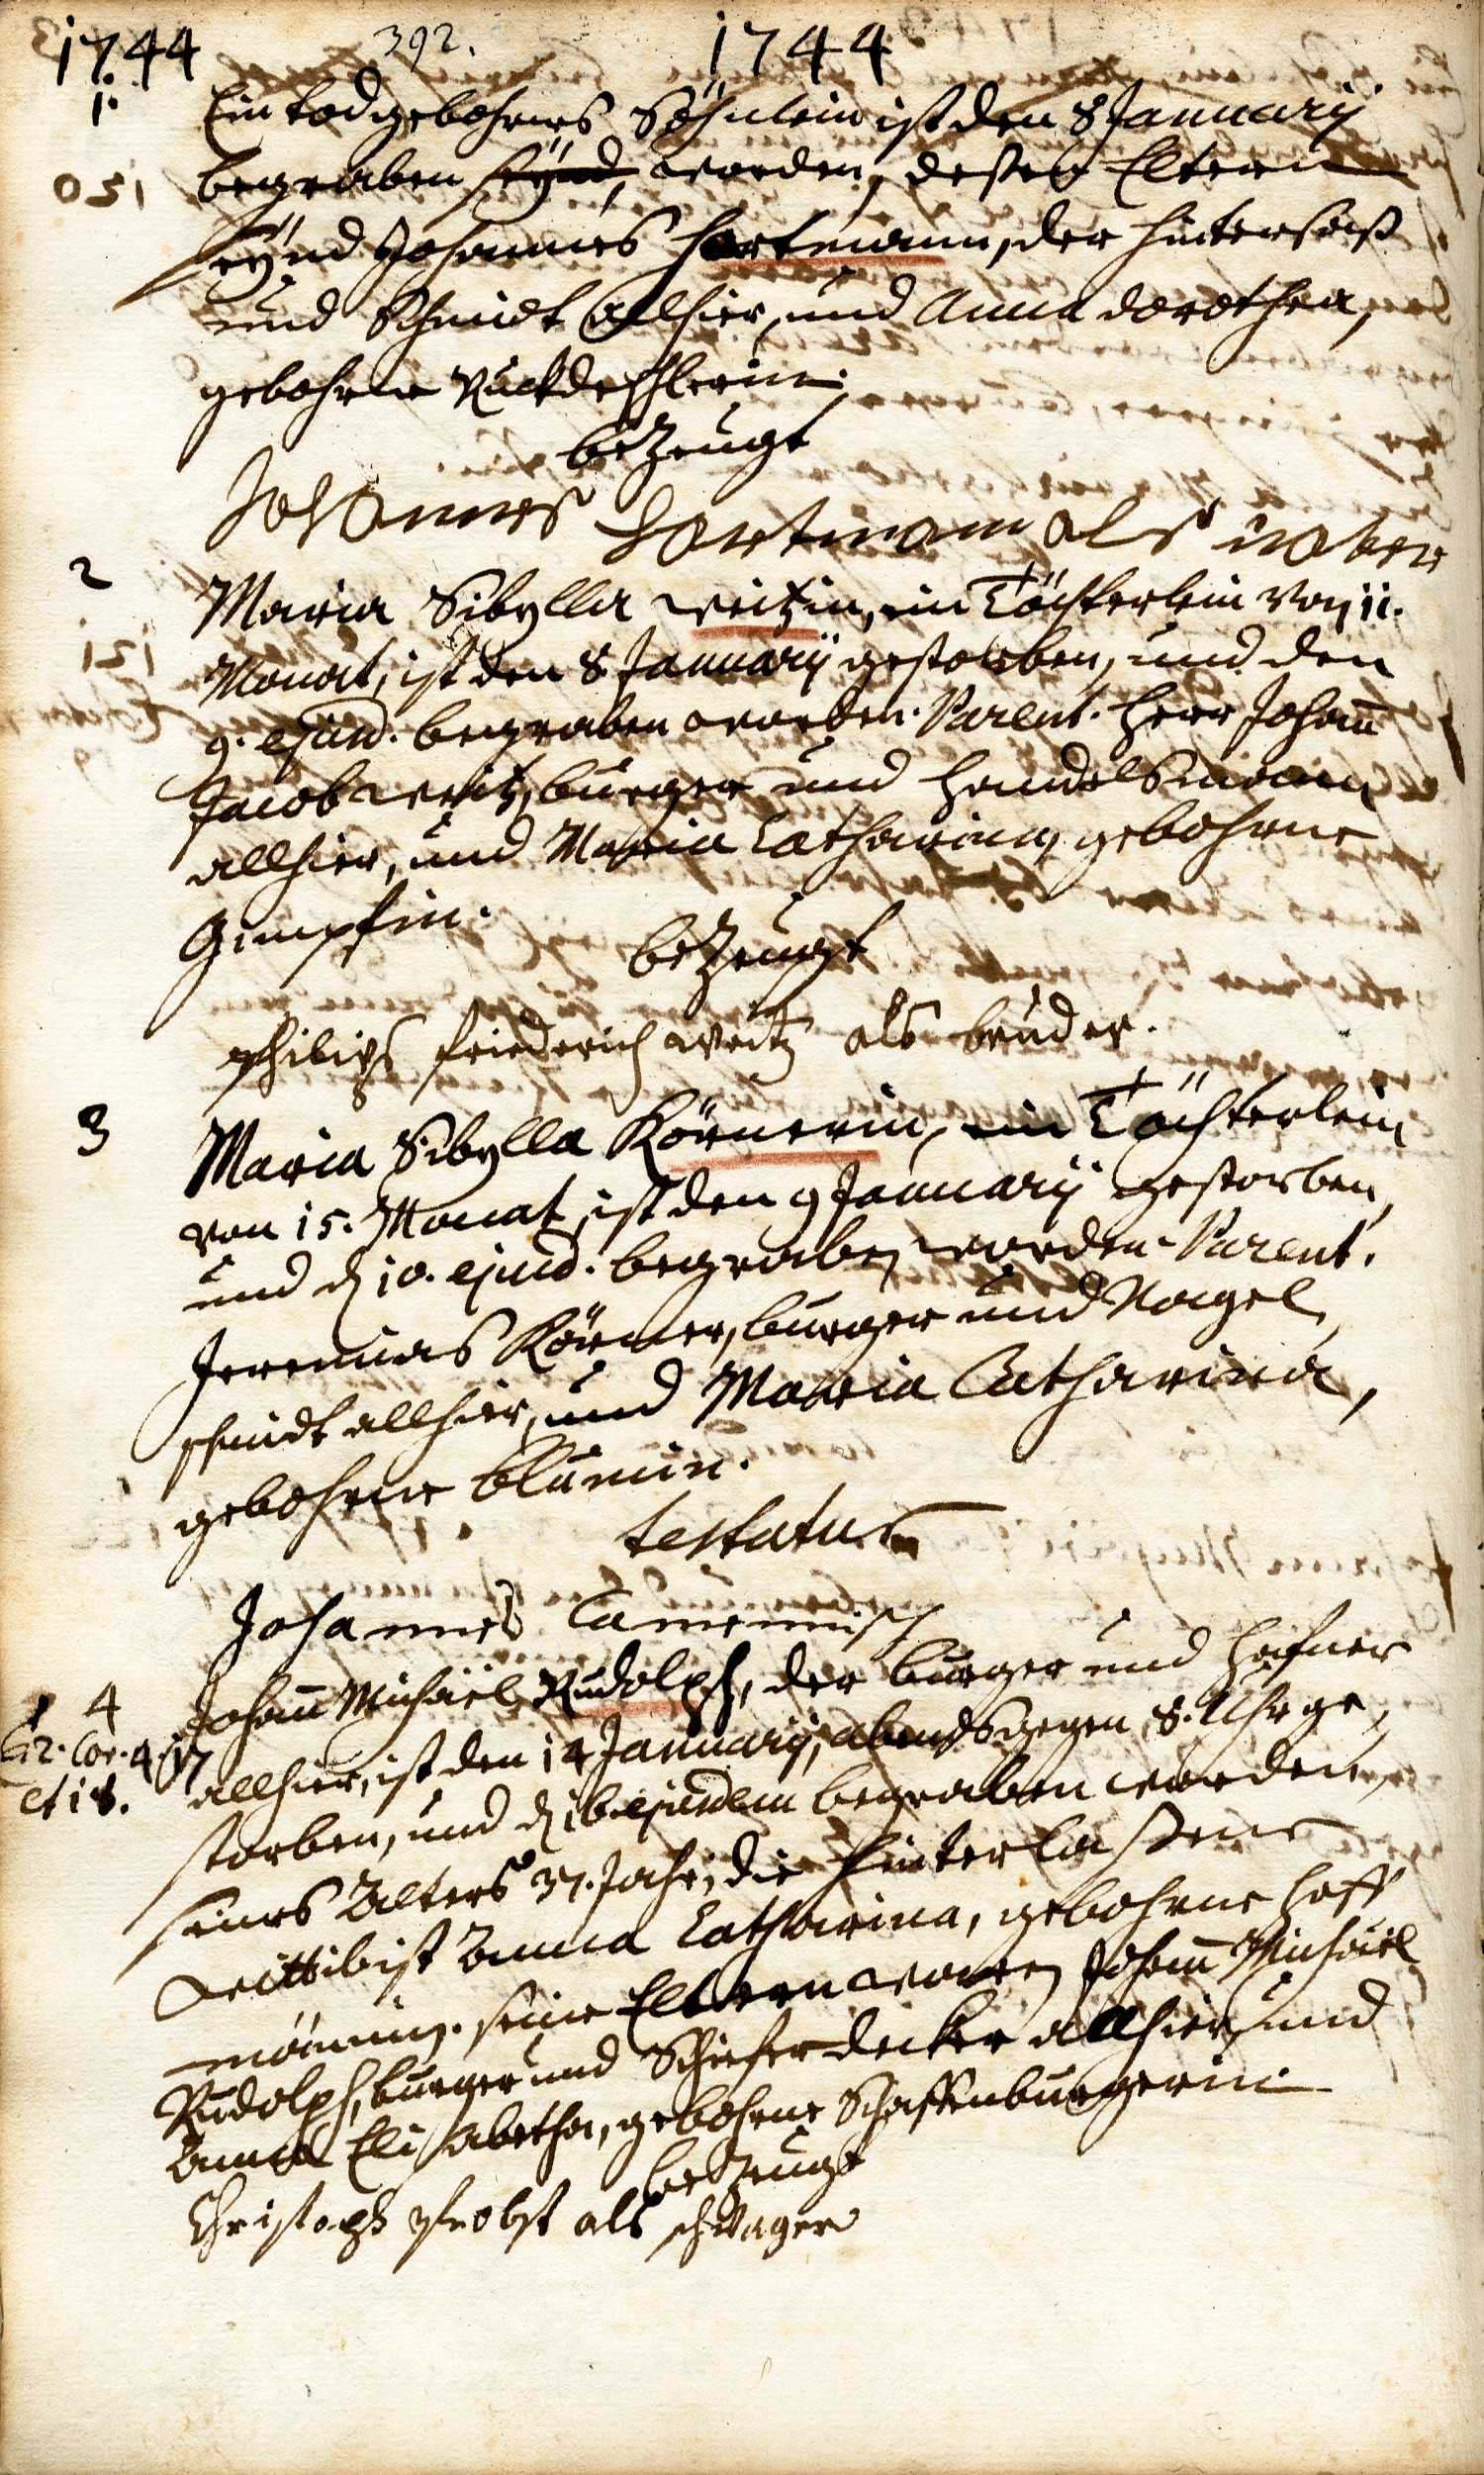 1744 392. 1744
1. Ein todgebohrnes Söhnlein ist den 8 Januarij
begraben seynd, worden, deßen Eltern
seynd Johannes Hartmann, der Hintersaß
und Schmidt allhier, und Anna Dorothea,
gebohrne Ruckdeschlerin.
bezeugt
Johannes Hartmann als vater
2 Maria Sibylla Weitzin, ein Töchterlein von 11.
Monat, ist den 8 Januarij gestorben, und den
9. ejusd. begraben worden. Parent. Herr Johann̄
Jacob Weitz, burger und Handelsmann
allhier, und Maria Catharina, gebohrne
Gimpfin.
bezeugt
Philips friederich Weitz als bruder.
3 Maria Sibylla Körnerin, ein Töchterlein
von 15. Monat, ist den 9 Januarij gestorben,
und d. 10. ejusd. begraben worden. Parent.
Jeremias Körner, burger und Nagel
schmidt allhier, und Maria Catharina,
gebohrne Blumin.
testatur
Johannes
4 Johan̄ Michael Rudolph, der burger und Häfner
2. Cor. 4. 17
et 18.
allhier, ist den 14 Januarij, abends gegen 8. Uhr ge
storben, und d. 16. ejusdem begraben worden,
seines Alters 37. Jahr, die hinterlaßene
Wittib ist Anna Catharina, gebohrne Hoff
männin. seine Eltern waren Johan̄ Michael
Rudolph, burger und Schieferdecker allhier, und
Anna Elisabetha, gebohrne Schaffenburgerin.
bezeugt
Christoph Probst als schwager